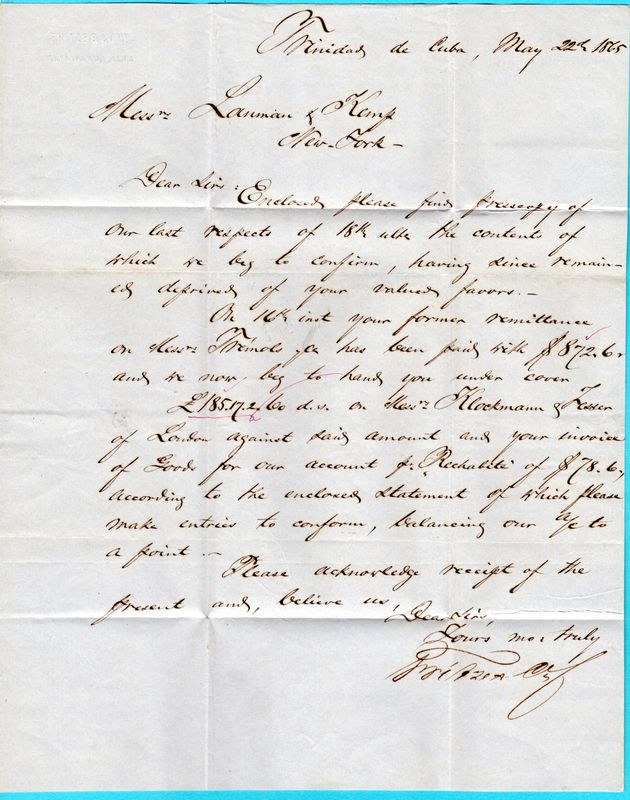 Trinidad de Cuba, May 22th 1865
Messrs Lanman & Kemp
New-York -
Dear Sirs: Enclosed please find presscopy of
our last respects of 18th ulto the contents of
which we beg to confirm, having since remain-
ed deprived of your valued favors. -
On 16th inst your former remittance
on Messrs has been paid with $872.6r
and we now beg to hand you under cover
£185.17.2. 60 d.s. on Messrs Klockmann &
of London against said amount and your invoice
of Goods for our account pr "Rechabite" of $78.6,
according to the enclosed statement of which please
make entries to conform, balancing our a/c to
a point. -
Please acknowledge receipt of the
present and, believe us,
Dear Sirs,
Yours mo: truly
Fritze